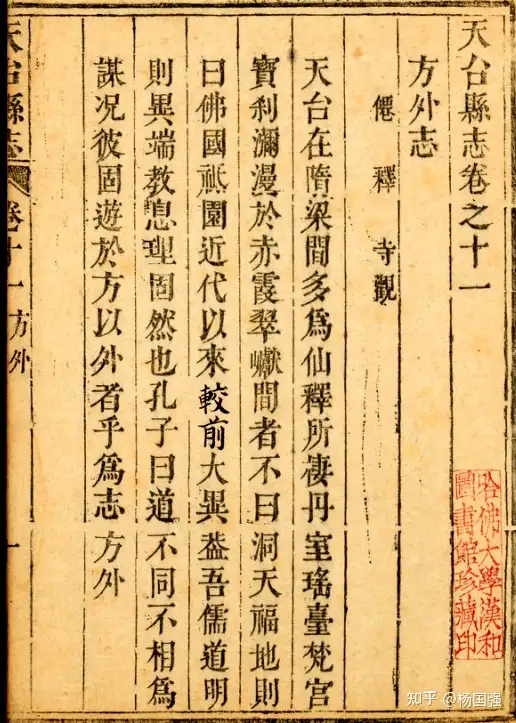 天台縣志卷之十一
方外志
僊 釋 寺觀
天台在隋梁間多爲仙釋所棲丹室瑤臺梵宮
寶刹瀰漫於赤霞翠巘間者不曰洞天福地則
曰佛國祗園近代以來較前大異葢吾儒道明
則異端教息理固然也孔子曰道不同不相爲
謀况彼固遊於方以外者乎爲志方外
天台縣志 卷十一 方外 一
哈佛大學漢和
圖書館珍藏印
知乎 @杨国强